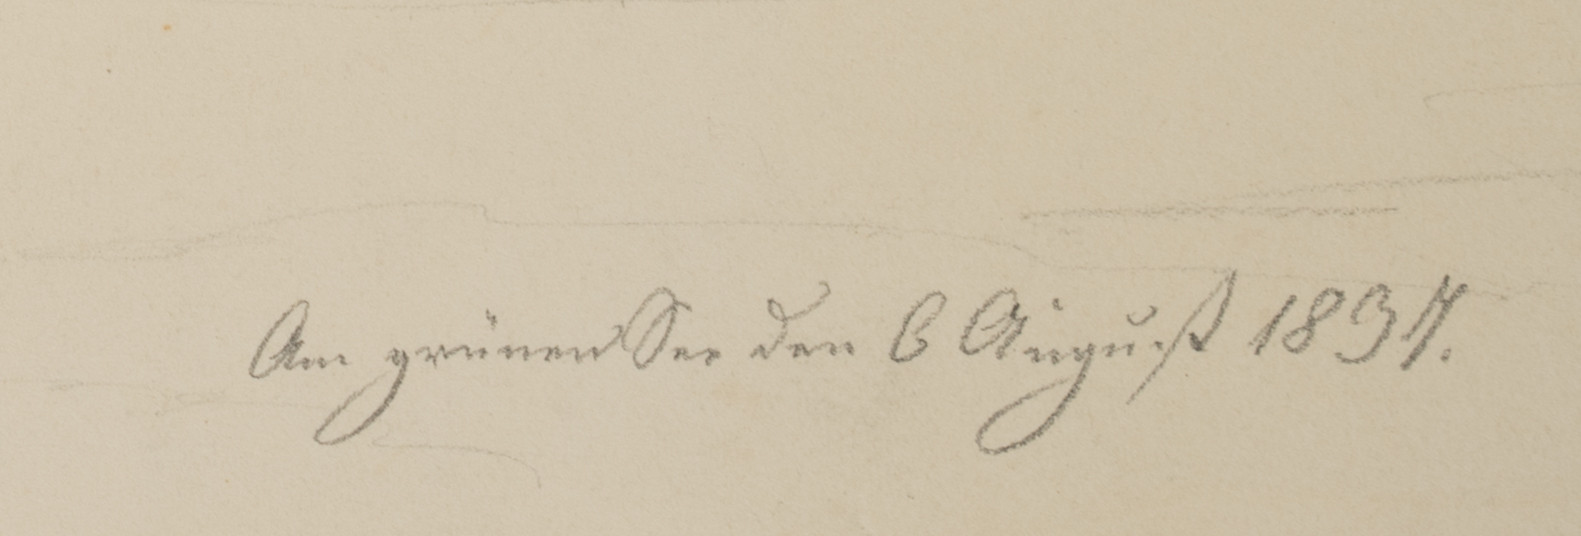 Am grünen See den 6 August 1837.